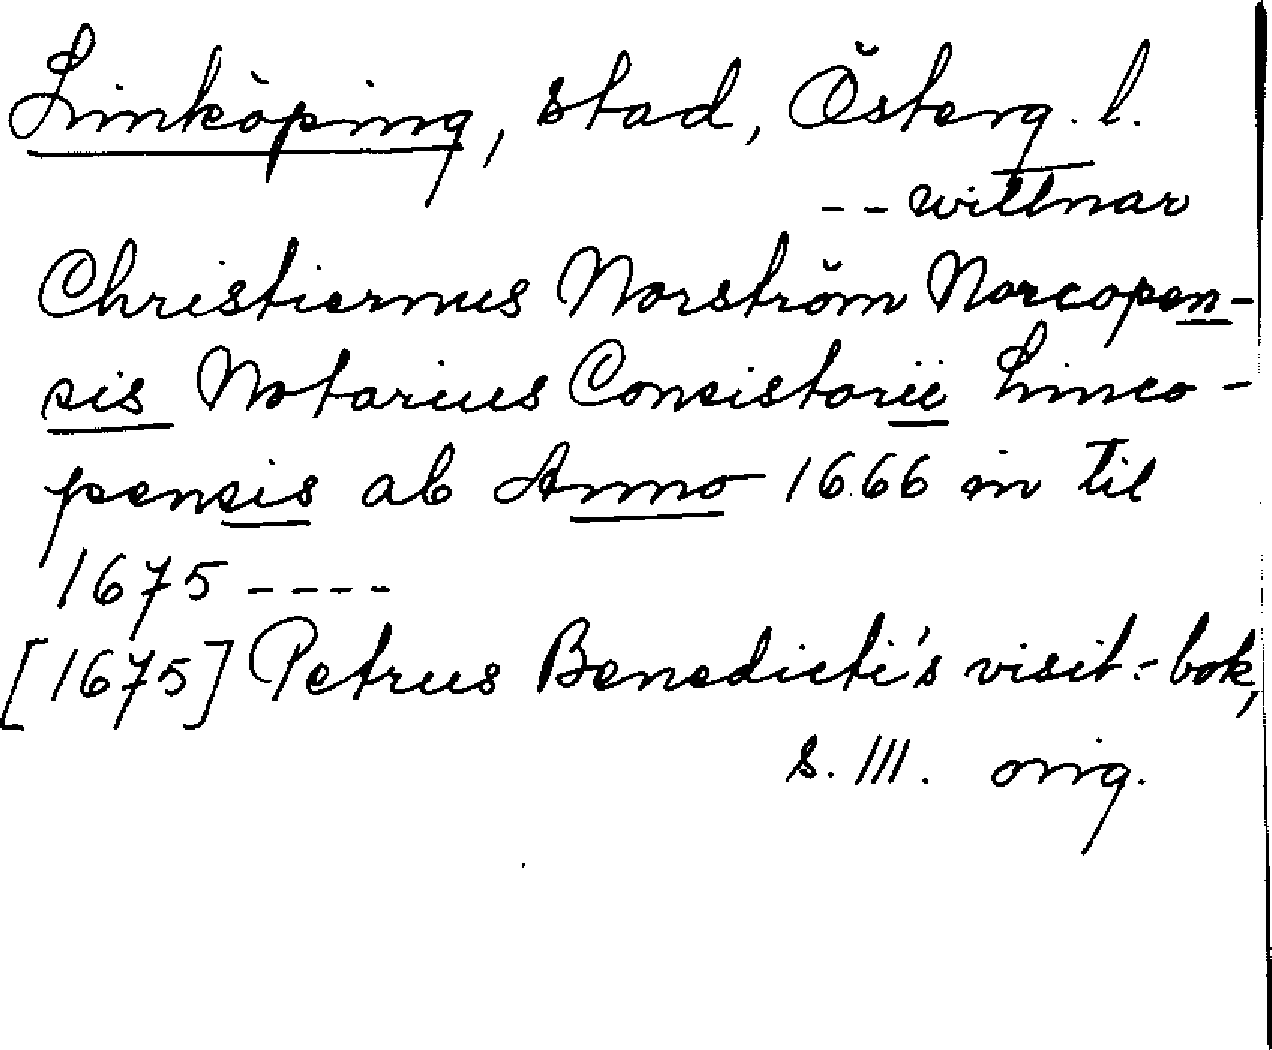 Linköping, stad, Österg. l.
-- wittnar
Christiernus Norström Norcopen-
sis Notarius Consistorii Linco-
pensis ab Anno 1666 in til
1675 ----
[1675] Petrus Benedicti's visit.-bok,
s. III. orig.